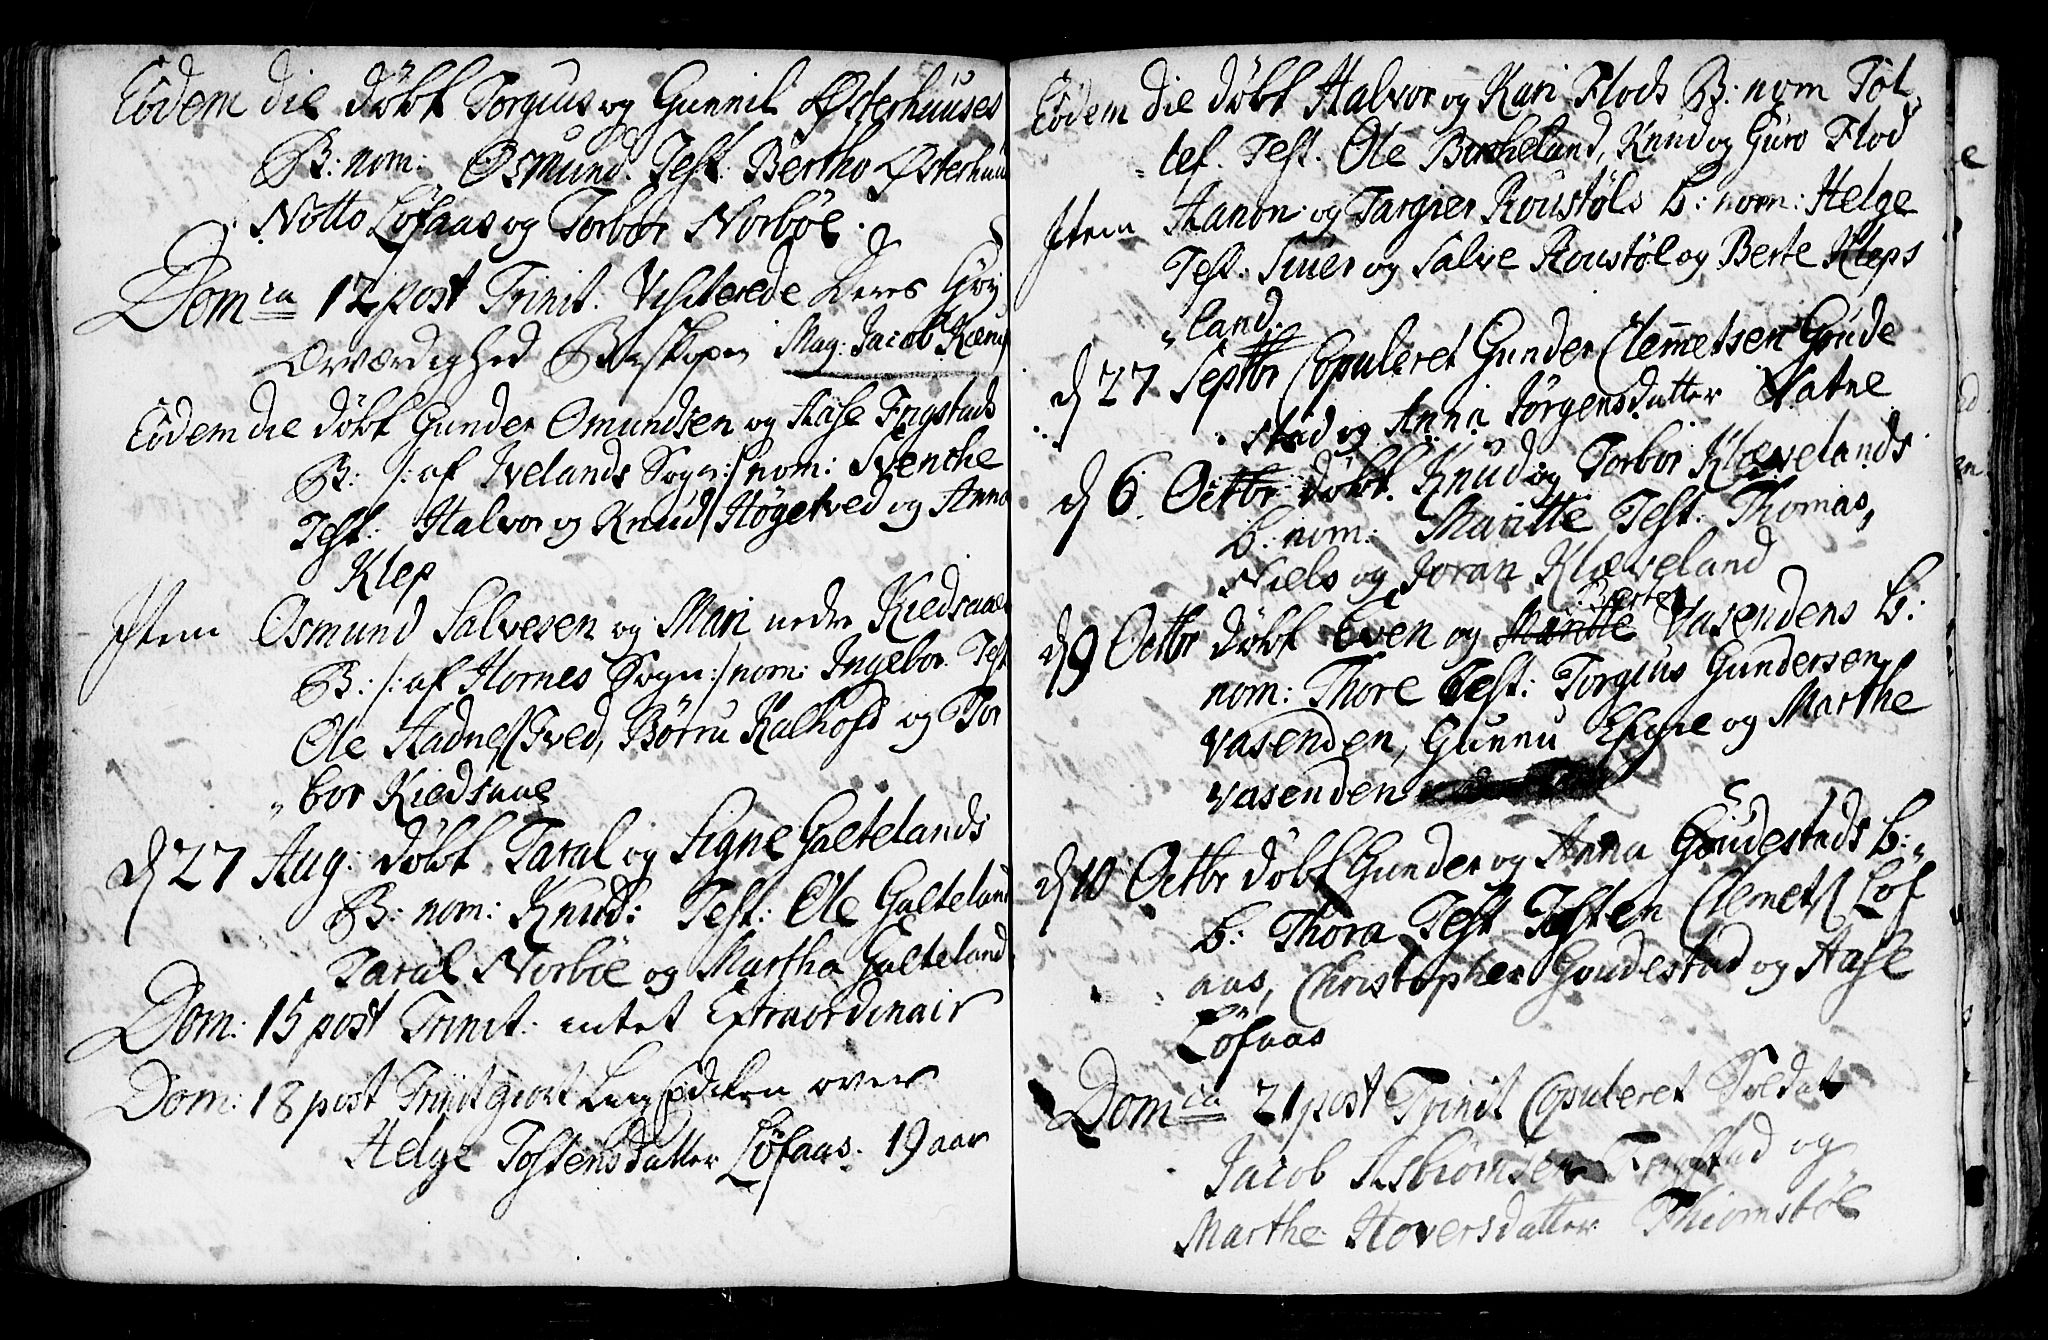 Eodem die døbt Torgius og Gunnil Østerhuuses
B: nom: Osmund. Test: Bertho Østerhuus
Notto Løfaas og Torbor Norbøe.
Dom ca 12 post Trinit. Visiterede Deres Høy
Ærværdighed Biskopen Mag: Jacob Kærup
Eodem die døbt Gunder Omundsen og Aase Frigstads
B: /: af Ivelands Sogn :/ nom: Svenche
Test: Halvor og Knud Høgetved og Anna
Klep
Item Osmund Salvesen og Mari nedre Kiedsaaes
B: /: af Hornes Sogn :/ nom: Ingebor. Test
Ole Aadnes Tved, Børru Kalhofd og Tor
bor Kiedsaae
d 27 Aug: døbt Taral og Signe Galtelands
B: nom: Knud: Test: Ole Galteland
Taral Norbøe og Martha Galteland
Dom: 15 post Trinit: intet Extraordinair
Dom: 18 post Trinit giort over
Helge Tostensdatter Løfaas. 19 aar
Eodem die døbt Halvor og Kari Flods B: nom Tol
lef. Test. Ole Birkeland, Knud og Guro Flod
Item Aanon og Targier Roustøls B: nom: Helge
Test. Siuer og Salve Roustøl og Berte Kleps
land.
d 27 Septbr Copuleret Gunder Clemmetsen Goude
stad og Anna Jørgensdatter Vatne
d 6 Octbr døbt. Knud og Torbor Klævelands
B: nom: Maritte Test: Thomas,
Niels og Joran Klæveland
Berte
d 9 Octbr døbt Even og Maritte Vasendens B:
nom: Thore Test: Torgius Gundersen
Vasenden, Gunnu og Marthe
Vasenden
d 10 Octbr døbt Gunder og Anna Goudestads B:
B: Thora Test Tosten Clemets Løf
aas, Christopher Goudestad og Aase
Løfaas
Dom ca 21 post Trinit Copuleret Soldat
Jacob Asbiørnsen Frigstad og
Marthe Hoversdatter Thiomstøl